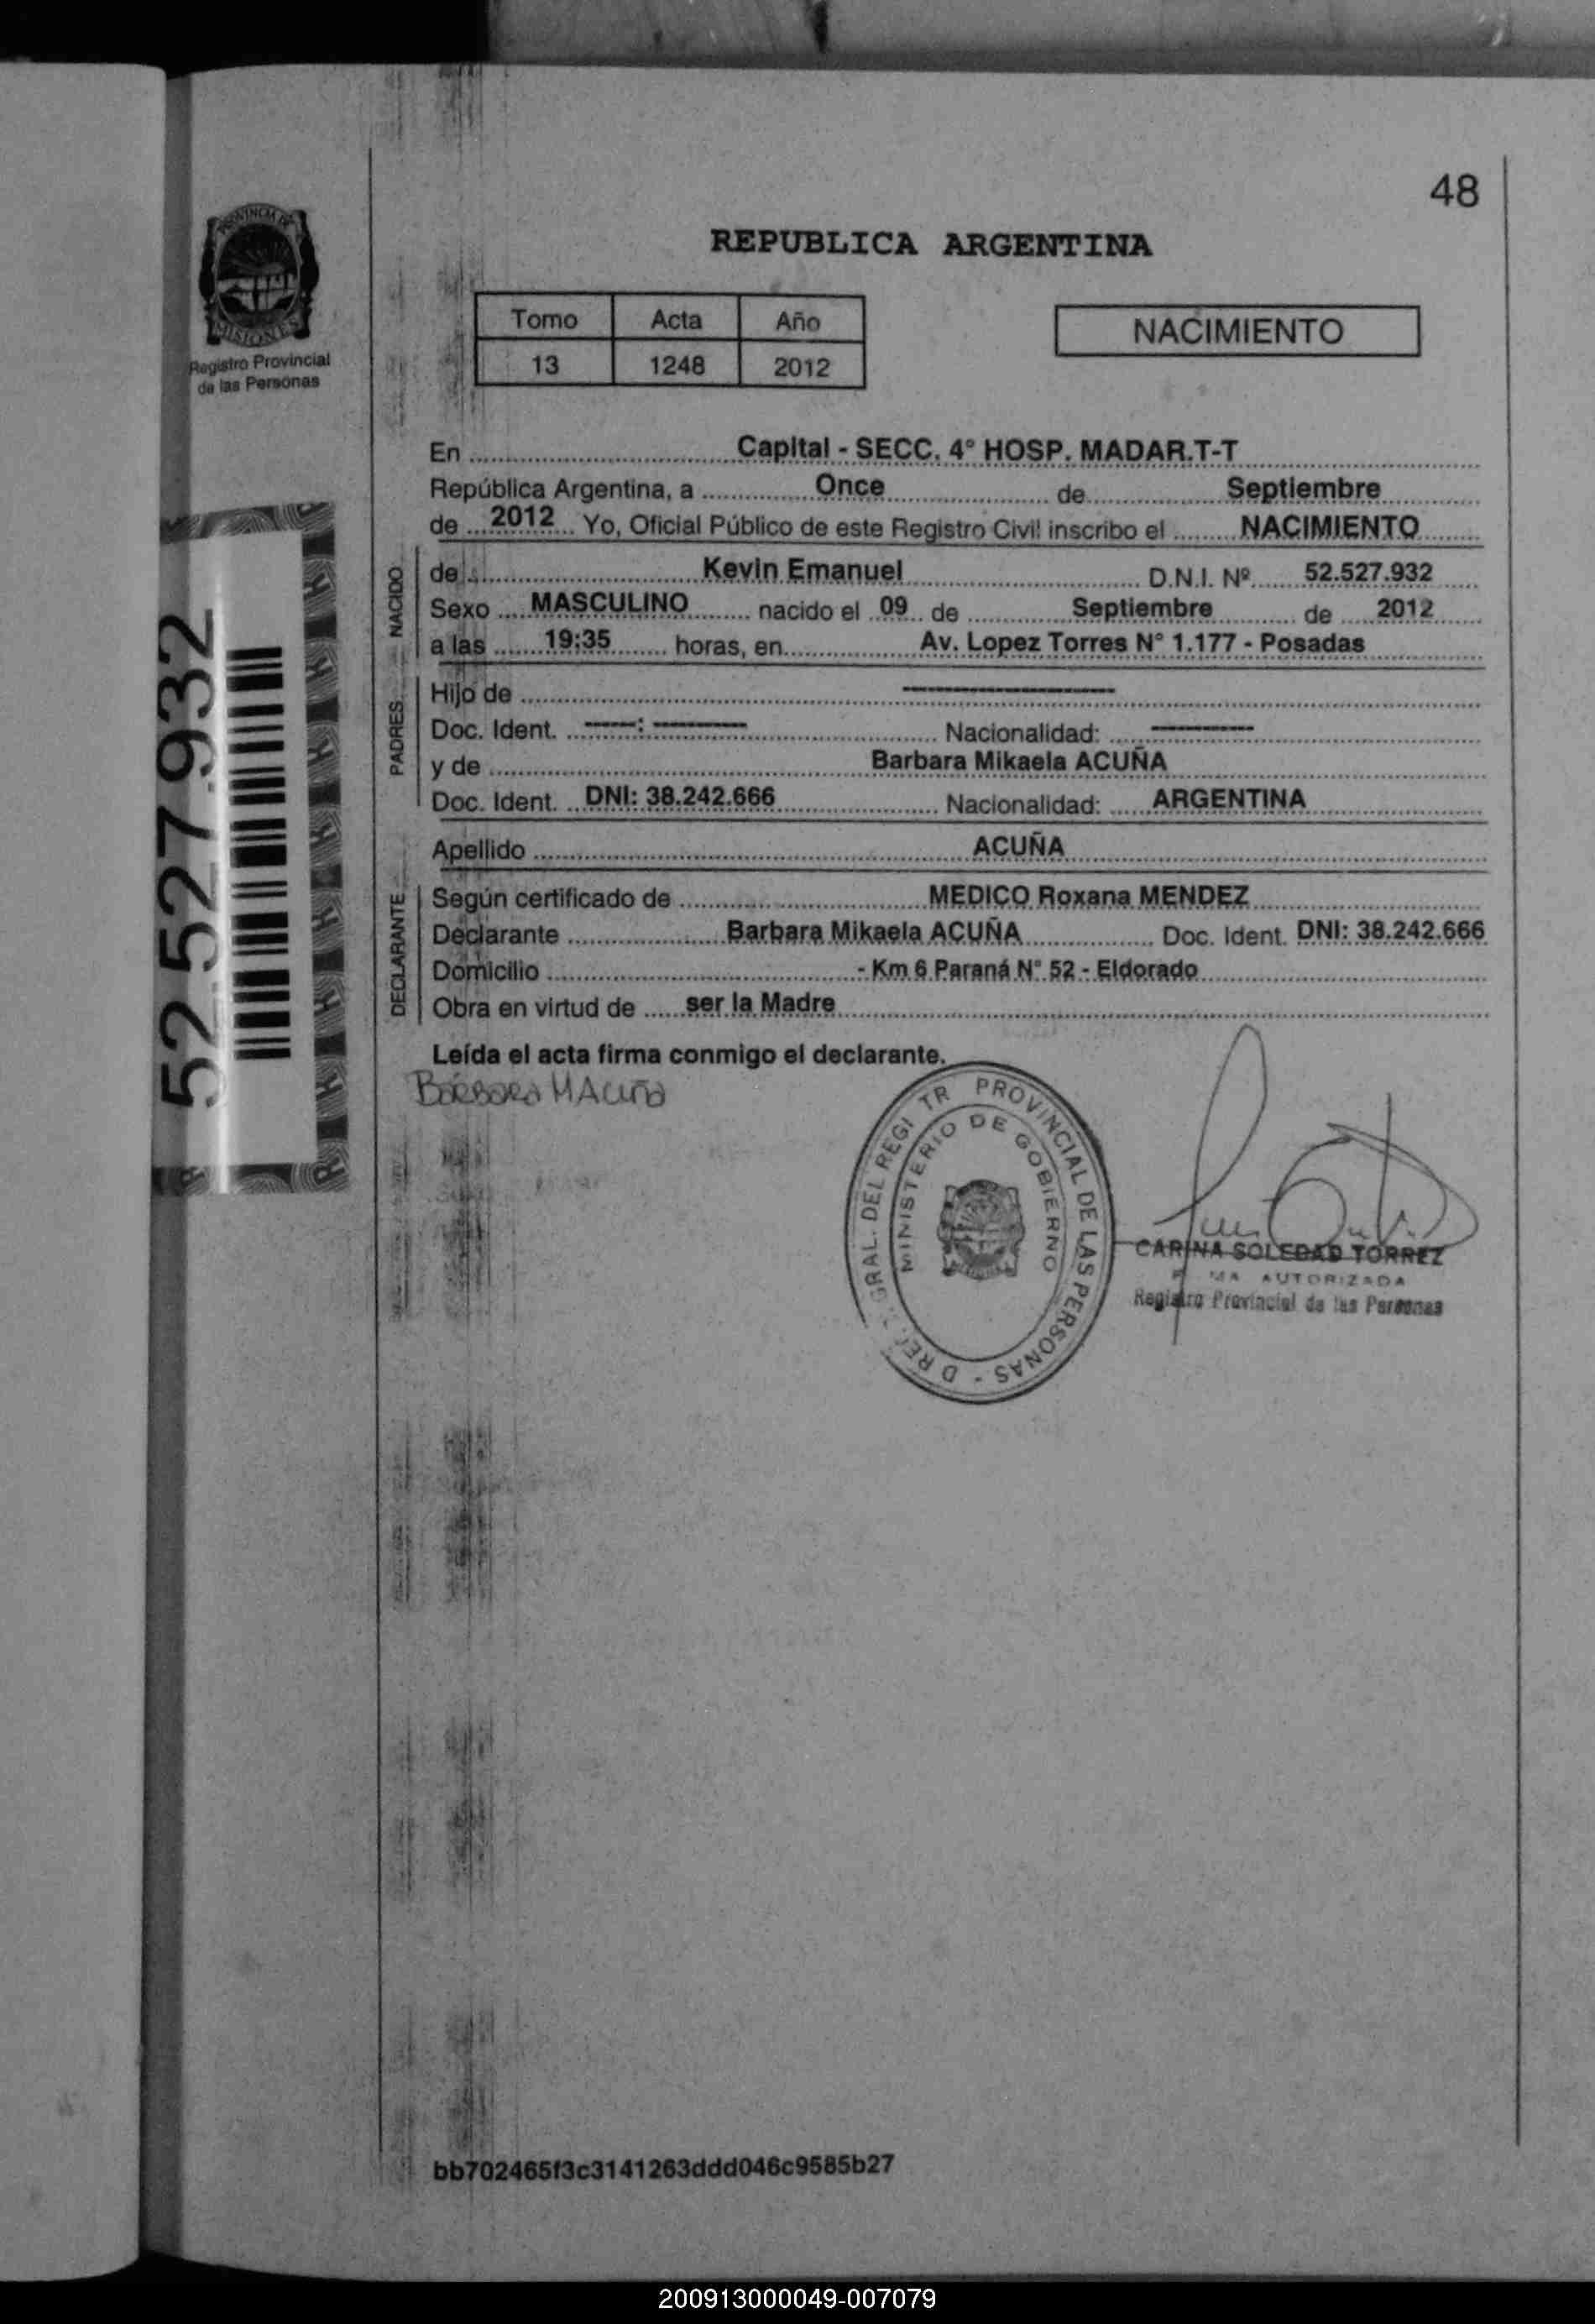 48
PROVINCIA DE
MISIONES
Registro Provincial
de las Personas
REPUBLICA ARGENTINA
Tomo Acta Año
13 1248 2012
NACIMIENTO
En Capital - SECC. 4° HOSP. MADAR.T-T
República Argentina, a Once de Septiembre
de 2012 Yo, Oficial Público de este Registro Civil inscribo el NACIMIENTO
NACIDO
de Kevin Emanuel D.N.I. Nº 52.527.932
Sexo MASCULINO nacido el 09 de Septiembre de 2012
a las 19:35 horas, en Av. Lopez Torres N° 1.177 - Posadas
PADRES
Hijo de
Doc. Ident. : Nacionalidad:
y de Barbara Mikaela ACUÑA
Doc. Ident. DNI: 38.242.666 Nacionalidad: ARGENTINA
Apellido ACUÑA
DECLARANTE
Según certificado de MEDICO Roxana MENDEZ
Declarante Barbara Mikaela ACUÑA Doc. Ident. DNI: 38.242.666
Domicilio - Km 6 Paraná N° 52 - Eldorado
Obra en virtud de ser la Madre
Leída el acta firma conmigo el declarante.
52.527.932
PROVINCIAL DE LAS PERSONAS
GRAL. DEL REGI TR
MINISTERIO DE GOBIERNO
CARINA SOLEDAD TORREZ
AUTORIZADA
Registro Provincial de las Personas
bb702465f3c3141263ddd046c9585b27
200913000049-007079